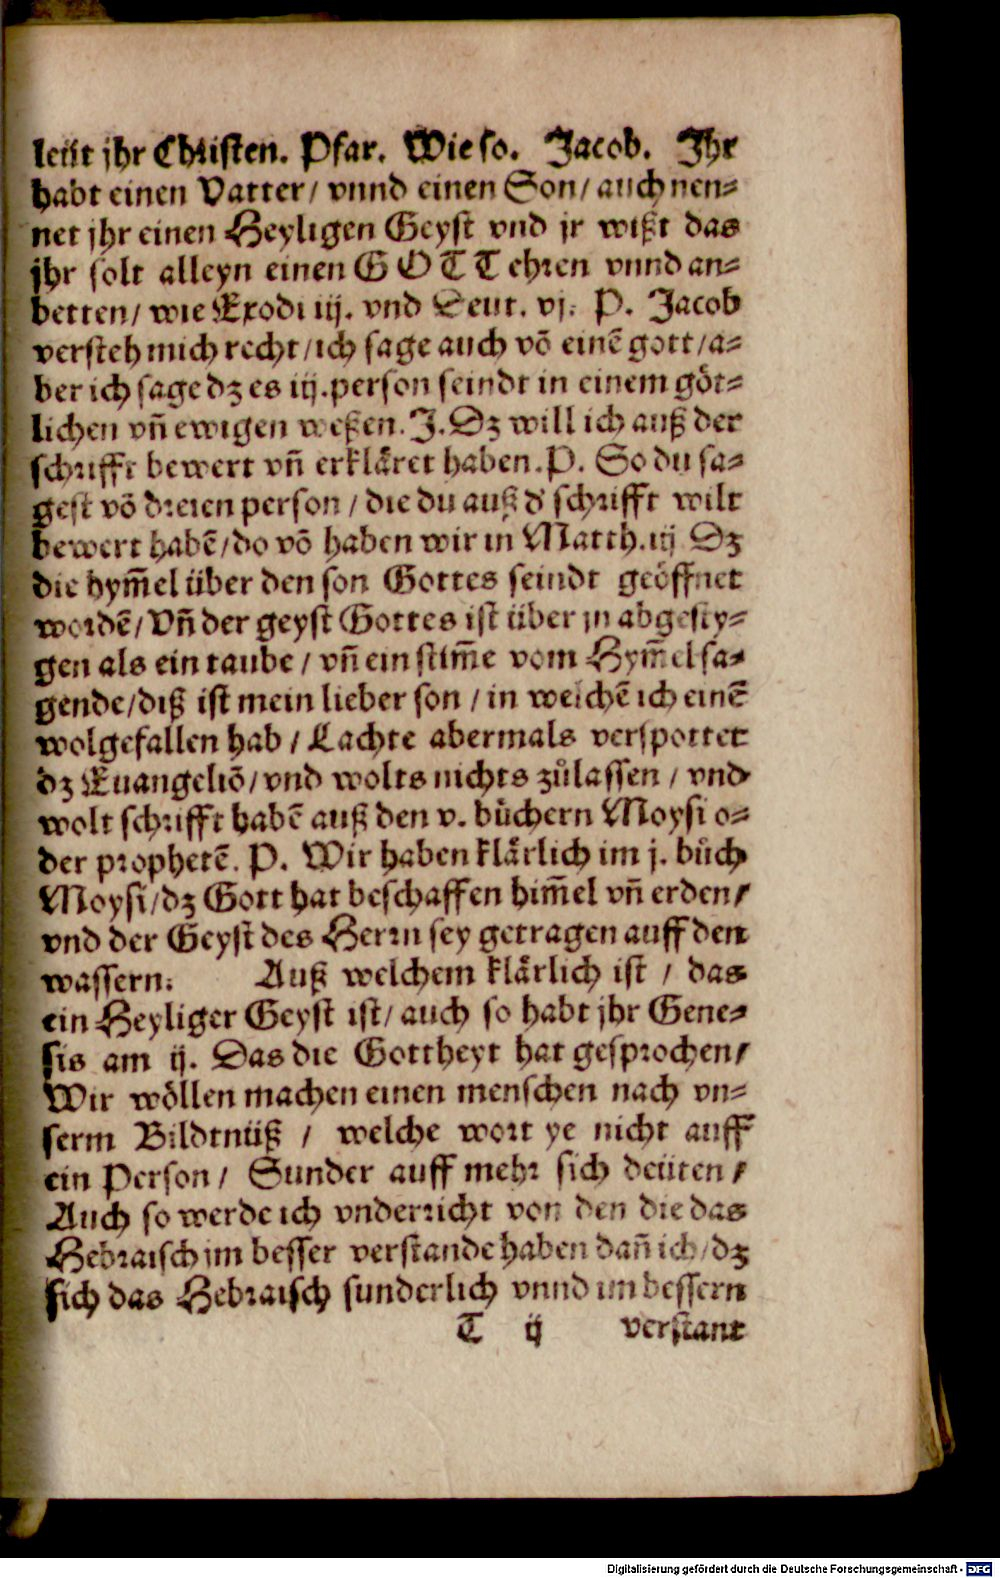 leüt jhr Christen. Pfar. Wie so. Jacob. Jhr
habt einen Vatter/ vnnd einen Son/ auch nen-
net jhr einen Heyligen Geyst vnd jr wißt das
jhr solt alleyn einen GOTT ehren vnnd an-
betten/ wie Exodi iij. vnd Deut. vj. P. Jacob
versteh mich recht/ ich sage auch võ einẽ gott/ a-
ber ich sage dz es iij. person seindt in einem göt-
lichen vñ ewigen weßen. J. Dz will ich auß der
schrifft bewert vñ erkläret haben. P. So du sa-
gest võ dreien person/ die du auß d' schrifft wilt
bewert habẽ/ do võ haben wir in Matth. iij Dz
die hym̃el über den son Gottes seindt geöffnet
wordẽ/ Vñ der geyst Gottes ist über jn abgesty-
gen als ein taube/ vñ ein stim̃e vom Hym̃el sa-
gende/ diß ist mein lieber son/ in welchẽ ich einẽ
wolgefallen hab/ Lachte abermals verspottet
dz Euangeliõ/ vnd wolts nichts zůlassen/ vnd
wolt schrifft habẽ auß den v. bůchern Moysi o-
der prophetẽ. P. Wir haben klärlich im j. bůch
Moysi/ dz Gott hat beschaffen him̃el vñ erden/
vnd der Geyst des Herrn sey getragen auff den
wassern: Auß welchem klärlich ist/ das
ein Heyliger Geyst ist/ auch so habt jhr Gene-
sis am ij. Das die Gottheyt hat gesprochen/
Wir wöllen machen einen menschen nach vn-
serm Bildtnüß/ welche wort ye nicht auff
ein Person/ Sunder auff mehr sich deüten/
Auch so werde ich vnderricht von den die das
Hebraisch im besser verstande haben dañ ich/ dz
sich das Hebraisch sunderlich vnnd im bessern
T ij verstant
Digitalisierung gefördert durch die Deutsche Forschungsgemeinschaft - DFG